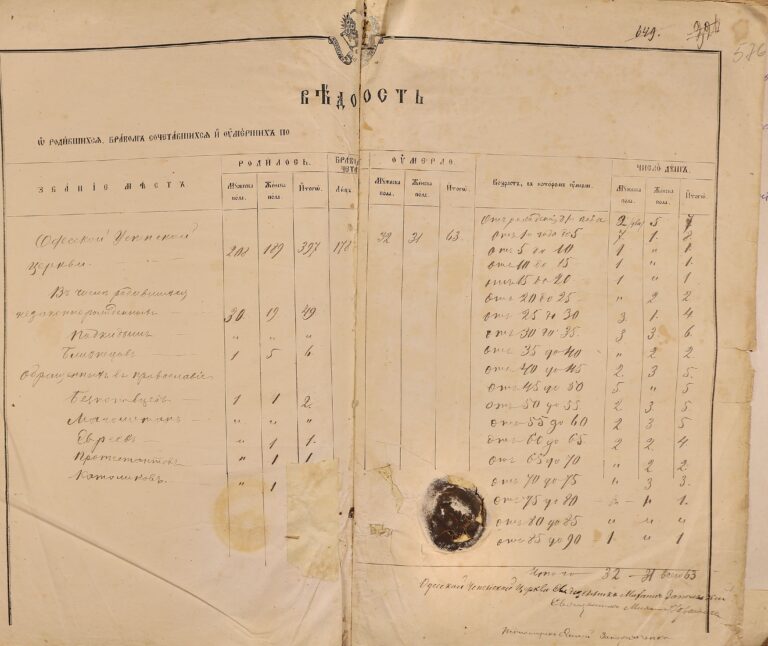 649.
576
ВѢДОМОСТЬ
Ѡ РОДИВШИХСЯ, БРАКОМЪ СОЧЕТАВШИХСЯ И ОУМЕРШИХЪ ПО
ЗВАНІЕ МѢСТЪ РОДИЛОСЬ. БРАКО ЧЕТА ОУМЕРЛО. Возрастъ, въ которомъ умерли. ЧИСЛО ДУШЪ.
Мужеска пола. Женска пола. Итого. Лицъ Мужеска пола. Женска пола. Итого. Мужеска пола. Женска пола. Итого.
Одесской Успенской 208 189 397 178 32 31 63. Отъ рожденія до 1 года 2 5 7
церкви. Отъ 1 года до 5 7 1. 8
отъ 5 до 10 1 " 1.
отъ 10 до 15 1 " 1.
Въ числѣ родившихся отъ 15 до 20 1 " 1
отъ 20 до 25 " 2 2.
незаконнорожденныхъ 30. 19 49. отъ 25 до 30 3. 1. 4
Подкидыш " " " отъ 30 до 35. 3 3. 6.
Близнецовъ 1 5 6. отъ 35 до 40 " 2 2
Обращенныхъ въ православіе отъ 40 до 45 2. 3 5.
отъ 45 до 50 5 " 5.
1 1 2. отъ 50 до 55 2 3. 5
" " " отъ 55 до 60 2 3 5
Евреевъ " 1 1. отъ 60 до 65 2 2. 4
Протестантовъ " 1 1 отъ 65 до 70 " 2 2.
Католиковъ. " 1 отъ 70 до 75 " 3 3.
отъ 75 до 80 " 1 1.
отъ 80 до 85 " " "
отъ 85 до 90 1 " 1.
Итого 32 — 31 всего 63
Одесской Успенской Церкви Священникъ Михаилъ
Священникъ